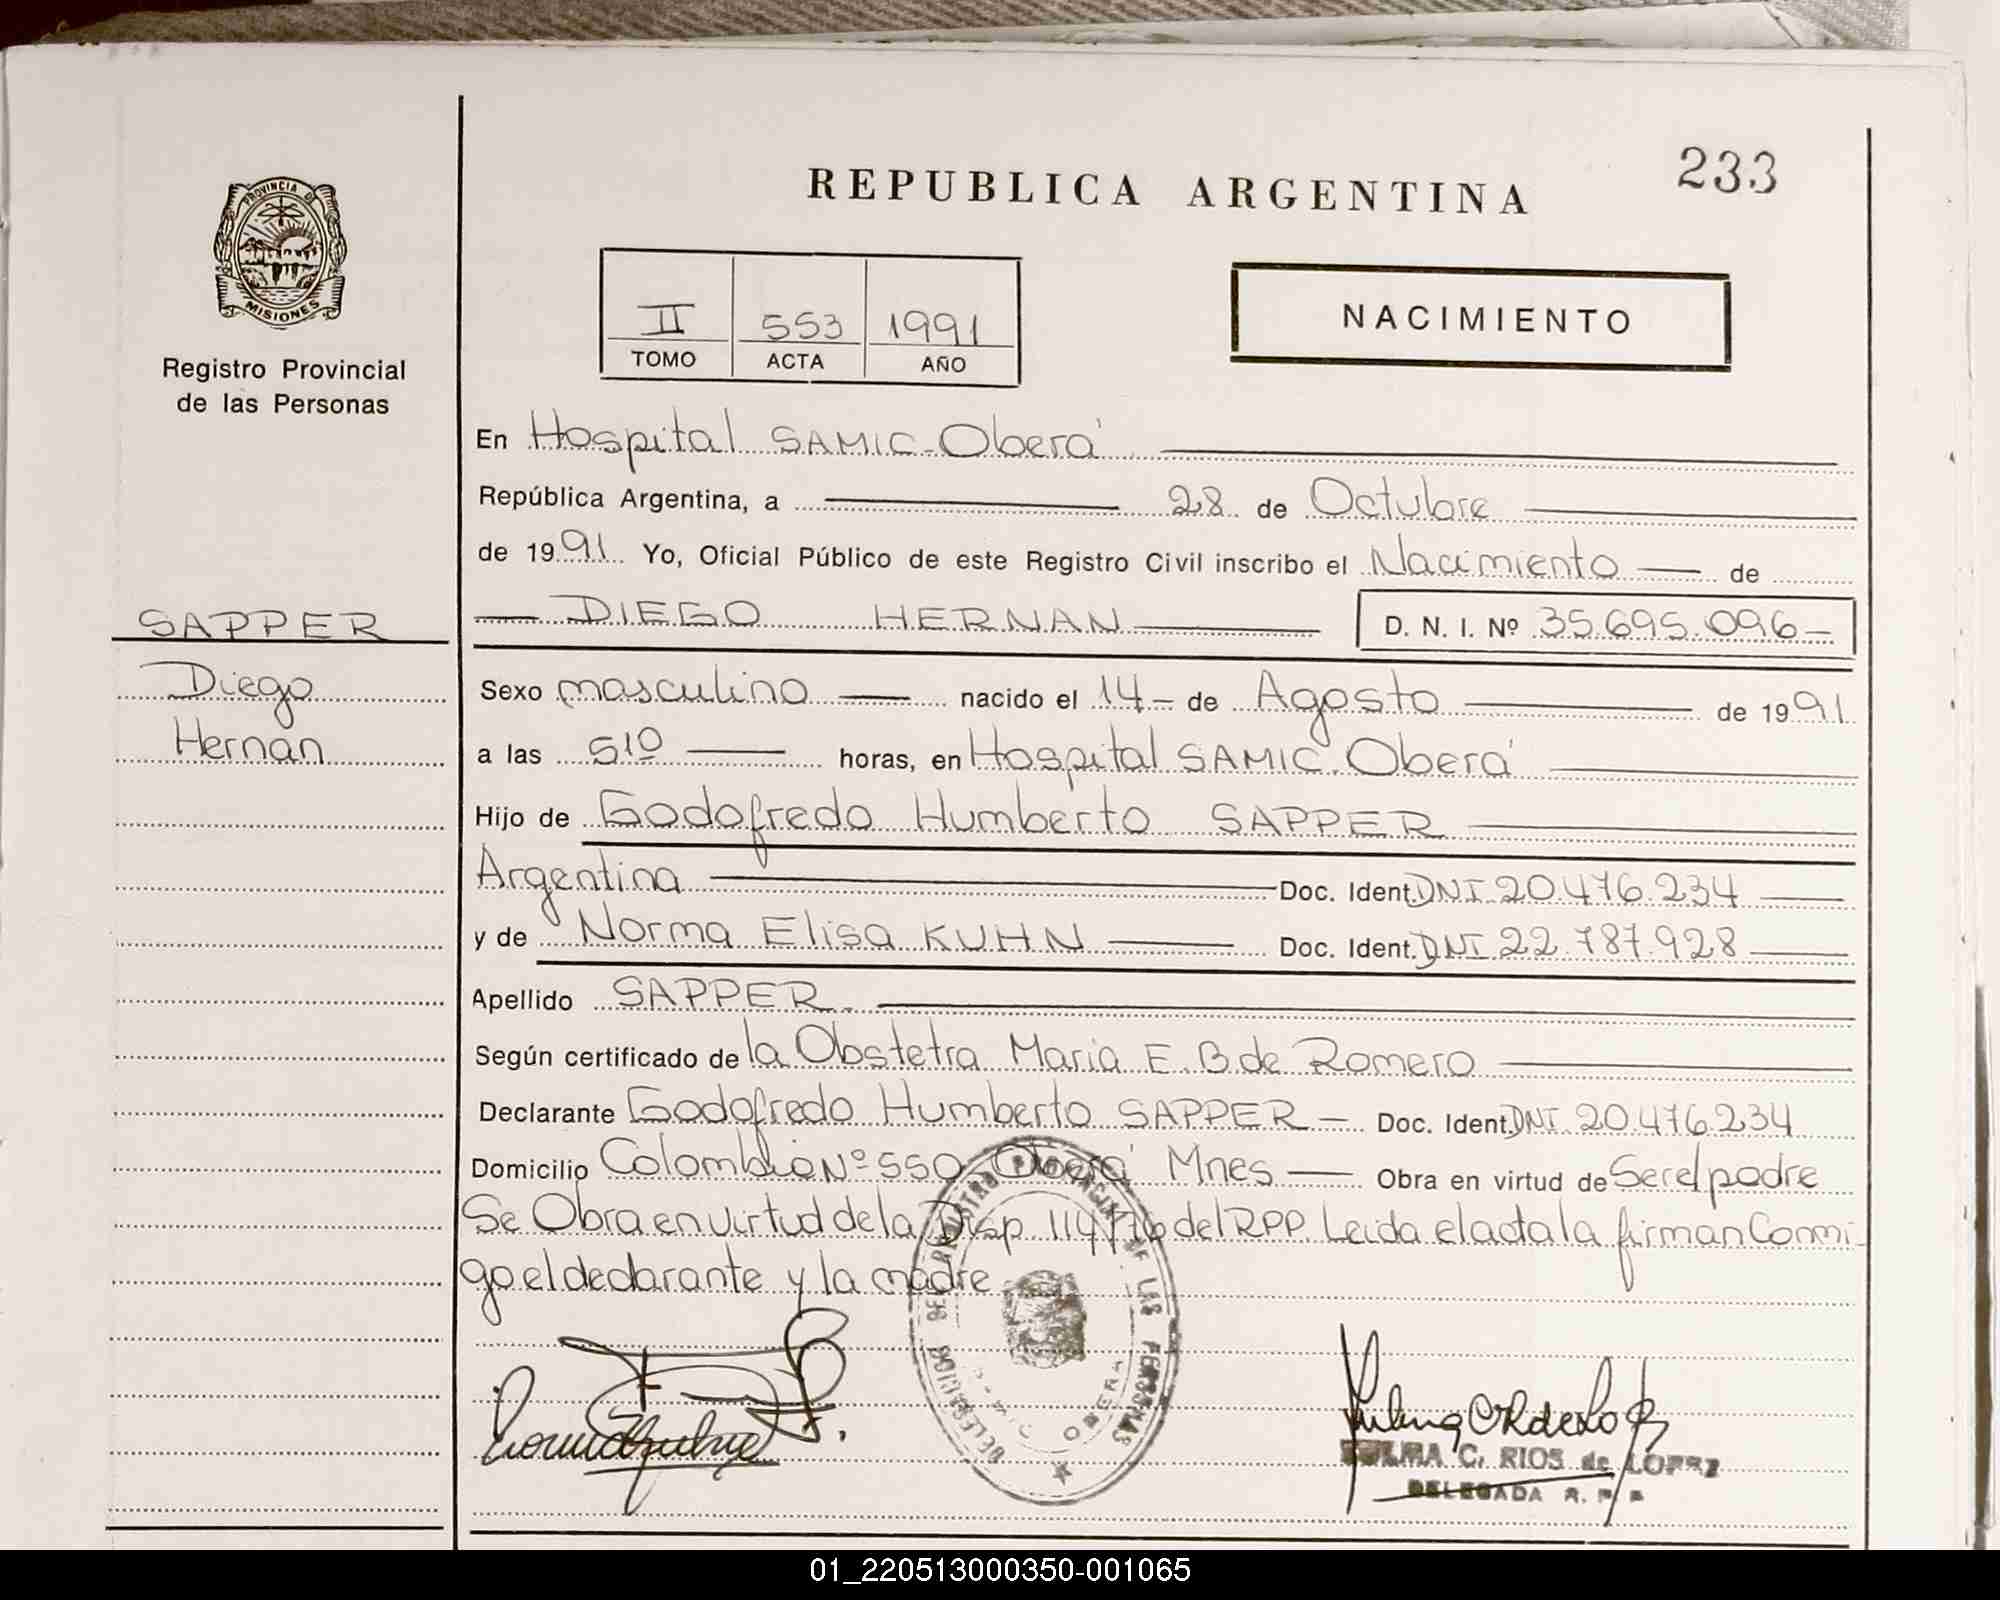 233
PROVINCIA DE
MISIONES
Registro Provincial
de las Personas
REPUBLICA ARGENTINA
II 553 1991
TOMO ACTA AÑO
NACIMIENTO
En Hospital SAMIC - Oberá
República Argentina, a 28 de Octubre
de 1991 Yo, Oficial Público de este Registro Civil inscribo el Nacimiento — de
SAPPER
Diego
Hernan
— DIEGO HERNAN — D. N. I. Nº 35.695.096 —
Sexo masculino — nacido el 14 - de Agosto — de 1991
a las 510 — horas, en Hospital SAMIC. Oberá
Hijo de Godofredo Humberto SAPPER
Argentina — Doc. Ident. DNI 20.476.234 —
y de Norma Elisa KUHN — Doc. Ident. DNI 22.787.928 —
Apellido SAPPER.
Según certificado de la Obstetra Maria E. B. de Romero
Declarante Godofredo Humberto SAPPER — Doc. Ident. DNI 20.476.234
Domicilio Colombia Nº 550 Oberá Mnes — Obra en virtud de Ser el padre
Se Obra en virtud de la Disp. 114/76 del RPP. Leida el acta la firman Conmi-
go el declarante y la madre
DELEGACION DEL REGISTRO PROVINCIAL DE LAS PERSONAS
OBERA
ZULMA C. RIOS de LOPEZ
DELEGADA R. P. P.
01_220513000350-001065